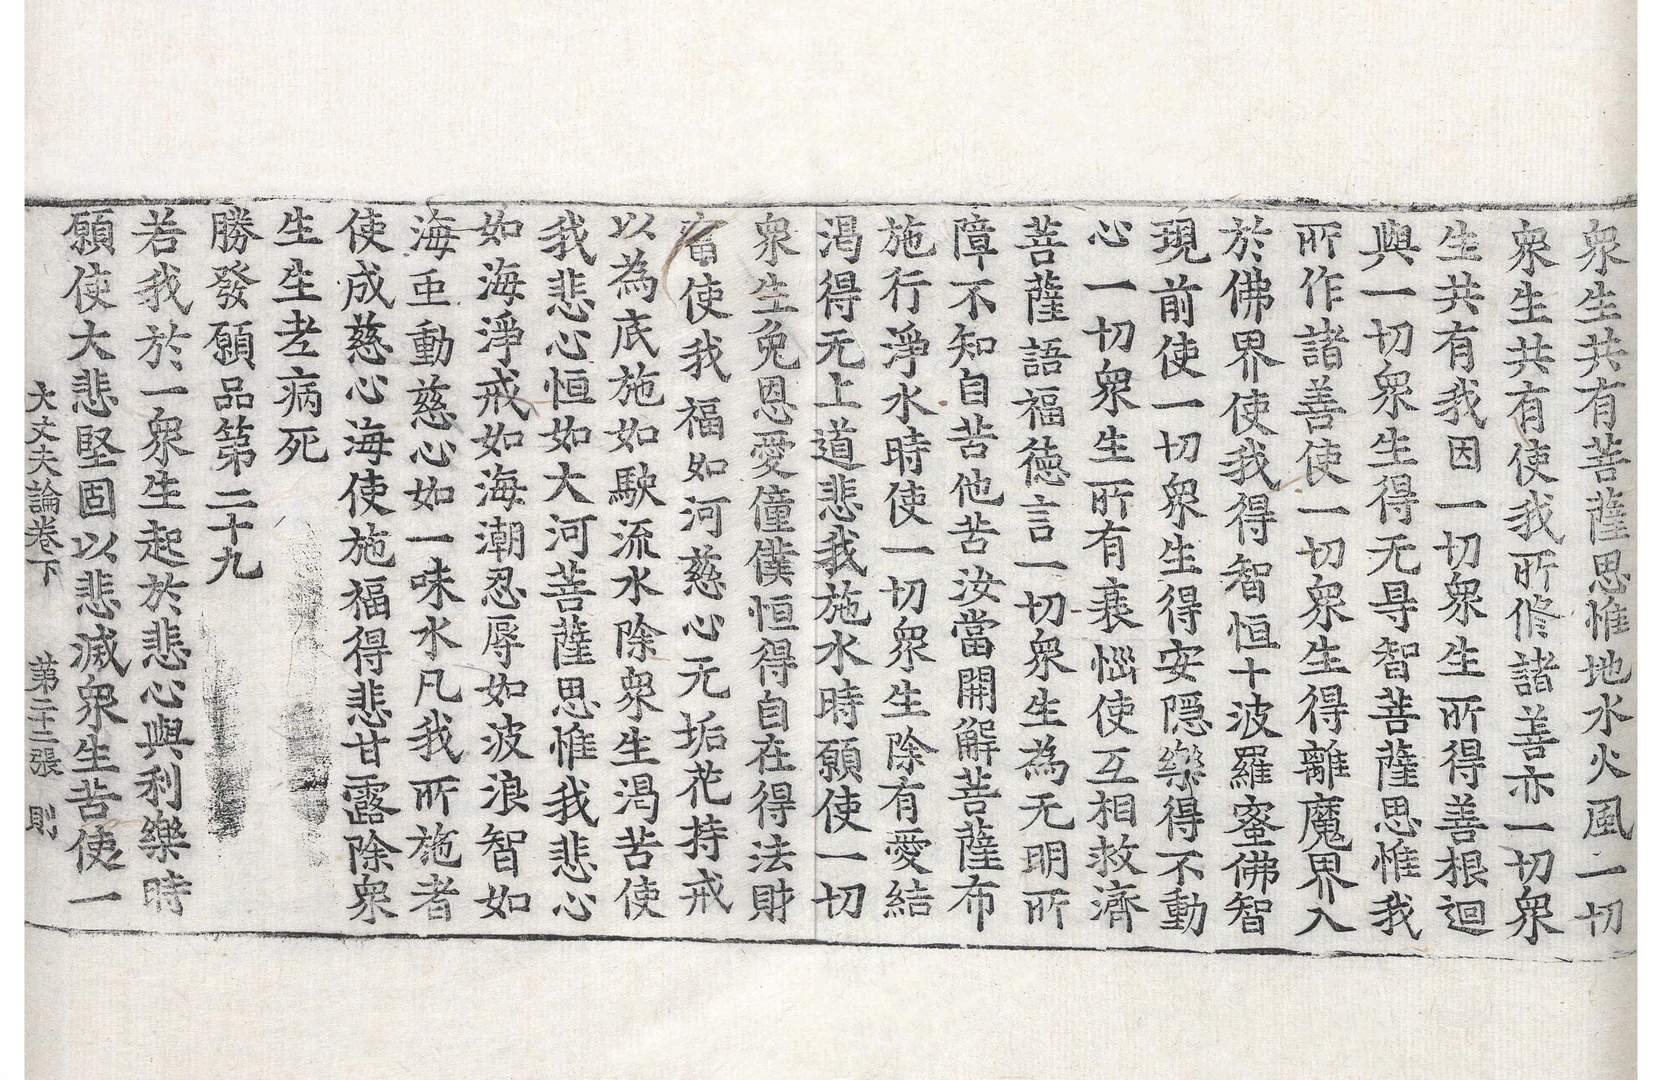 衆生共有菩薩思惟地水火風一切
衆生共有使我所修諸善亦一切衆
生共有我因一切衆生所得善根迴
與一切衆生得无㝵智菩薩思惟我
所作諸善使一切衆生得離魔界入
於佛界使我得智恒十波羅蜜佛智
現前使一切衆生得安隱樂得不動
心一切衆生所有衰惱使互相救濟
菩薩語福德言一切衆生為无明所
障不知自苦他苦汝當開解菩薩布
施行淨水時使一切衆生除有愛結
渴得无上道悲我施水時願使一切
衆生免恩愛僮僕恒得自在得法財
當使我福如河慈心无垢花持戒
以為底施如駛流水除衆生渴苦使
我悲心恒如大河菩薩思惟我悲心
如海淨戒如海潮忍辱如波浪智如
海䖝動慈心如一味水凡我所施者
使成慈心海使施福得悲甘露除衆
生生老病死
勝發願品第二十九
若我於一衆生起於悲心與利樂時
大丈夫論卷下 第二十二張 則
願使大悲堅固以悲滅衆生苦使一